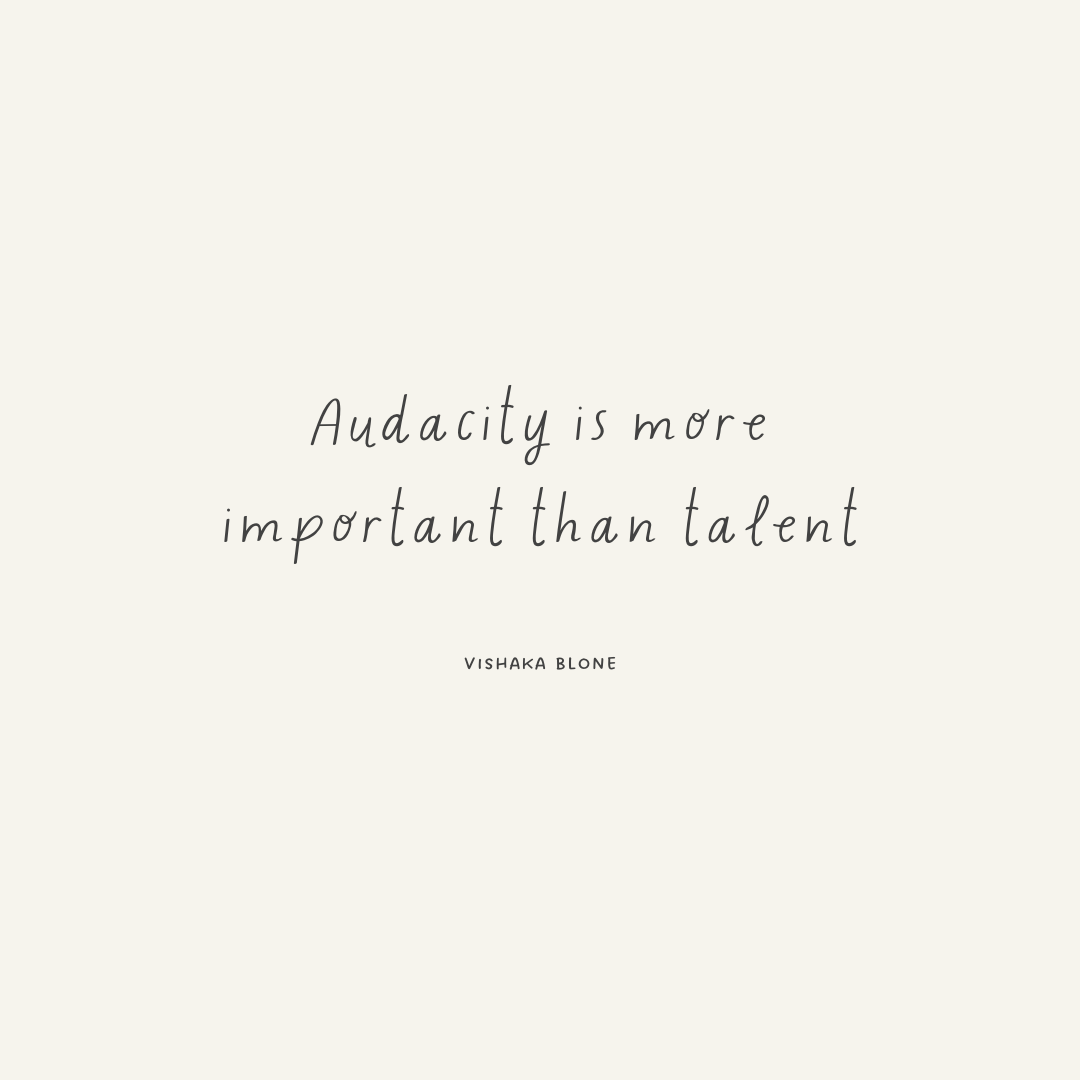 Audacity is more
important than talent
VISHAKA BLONE